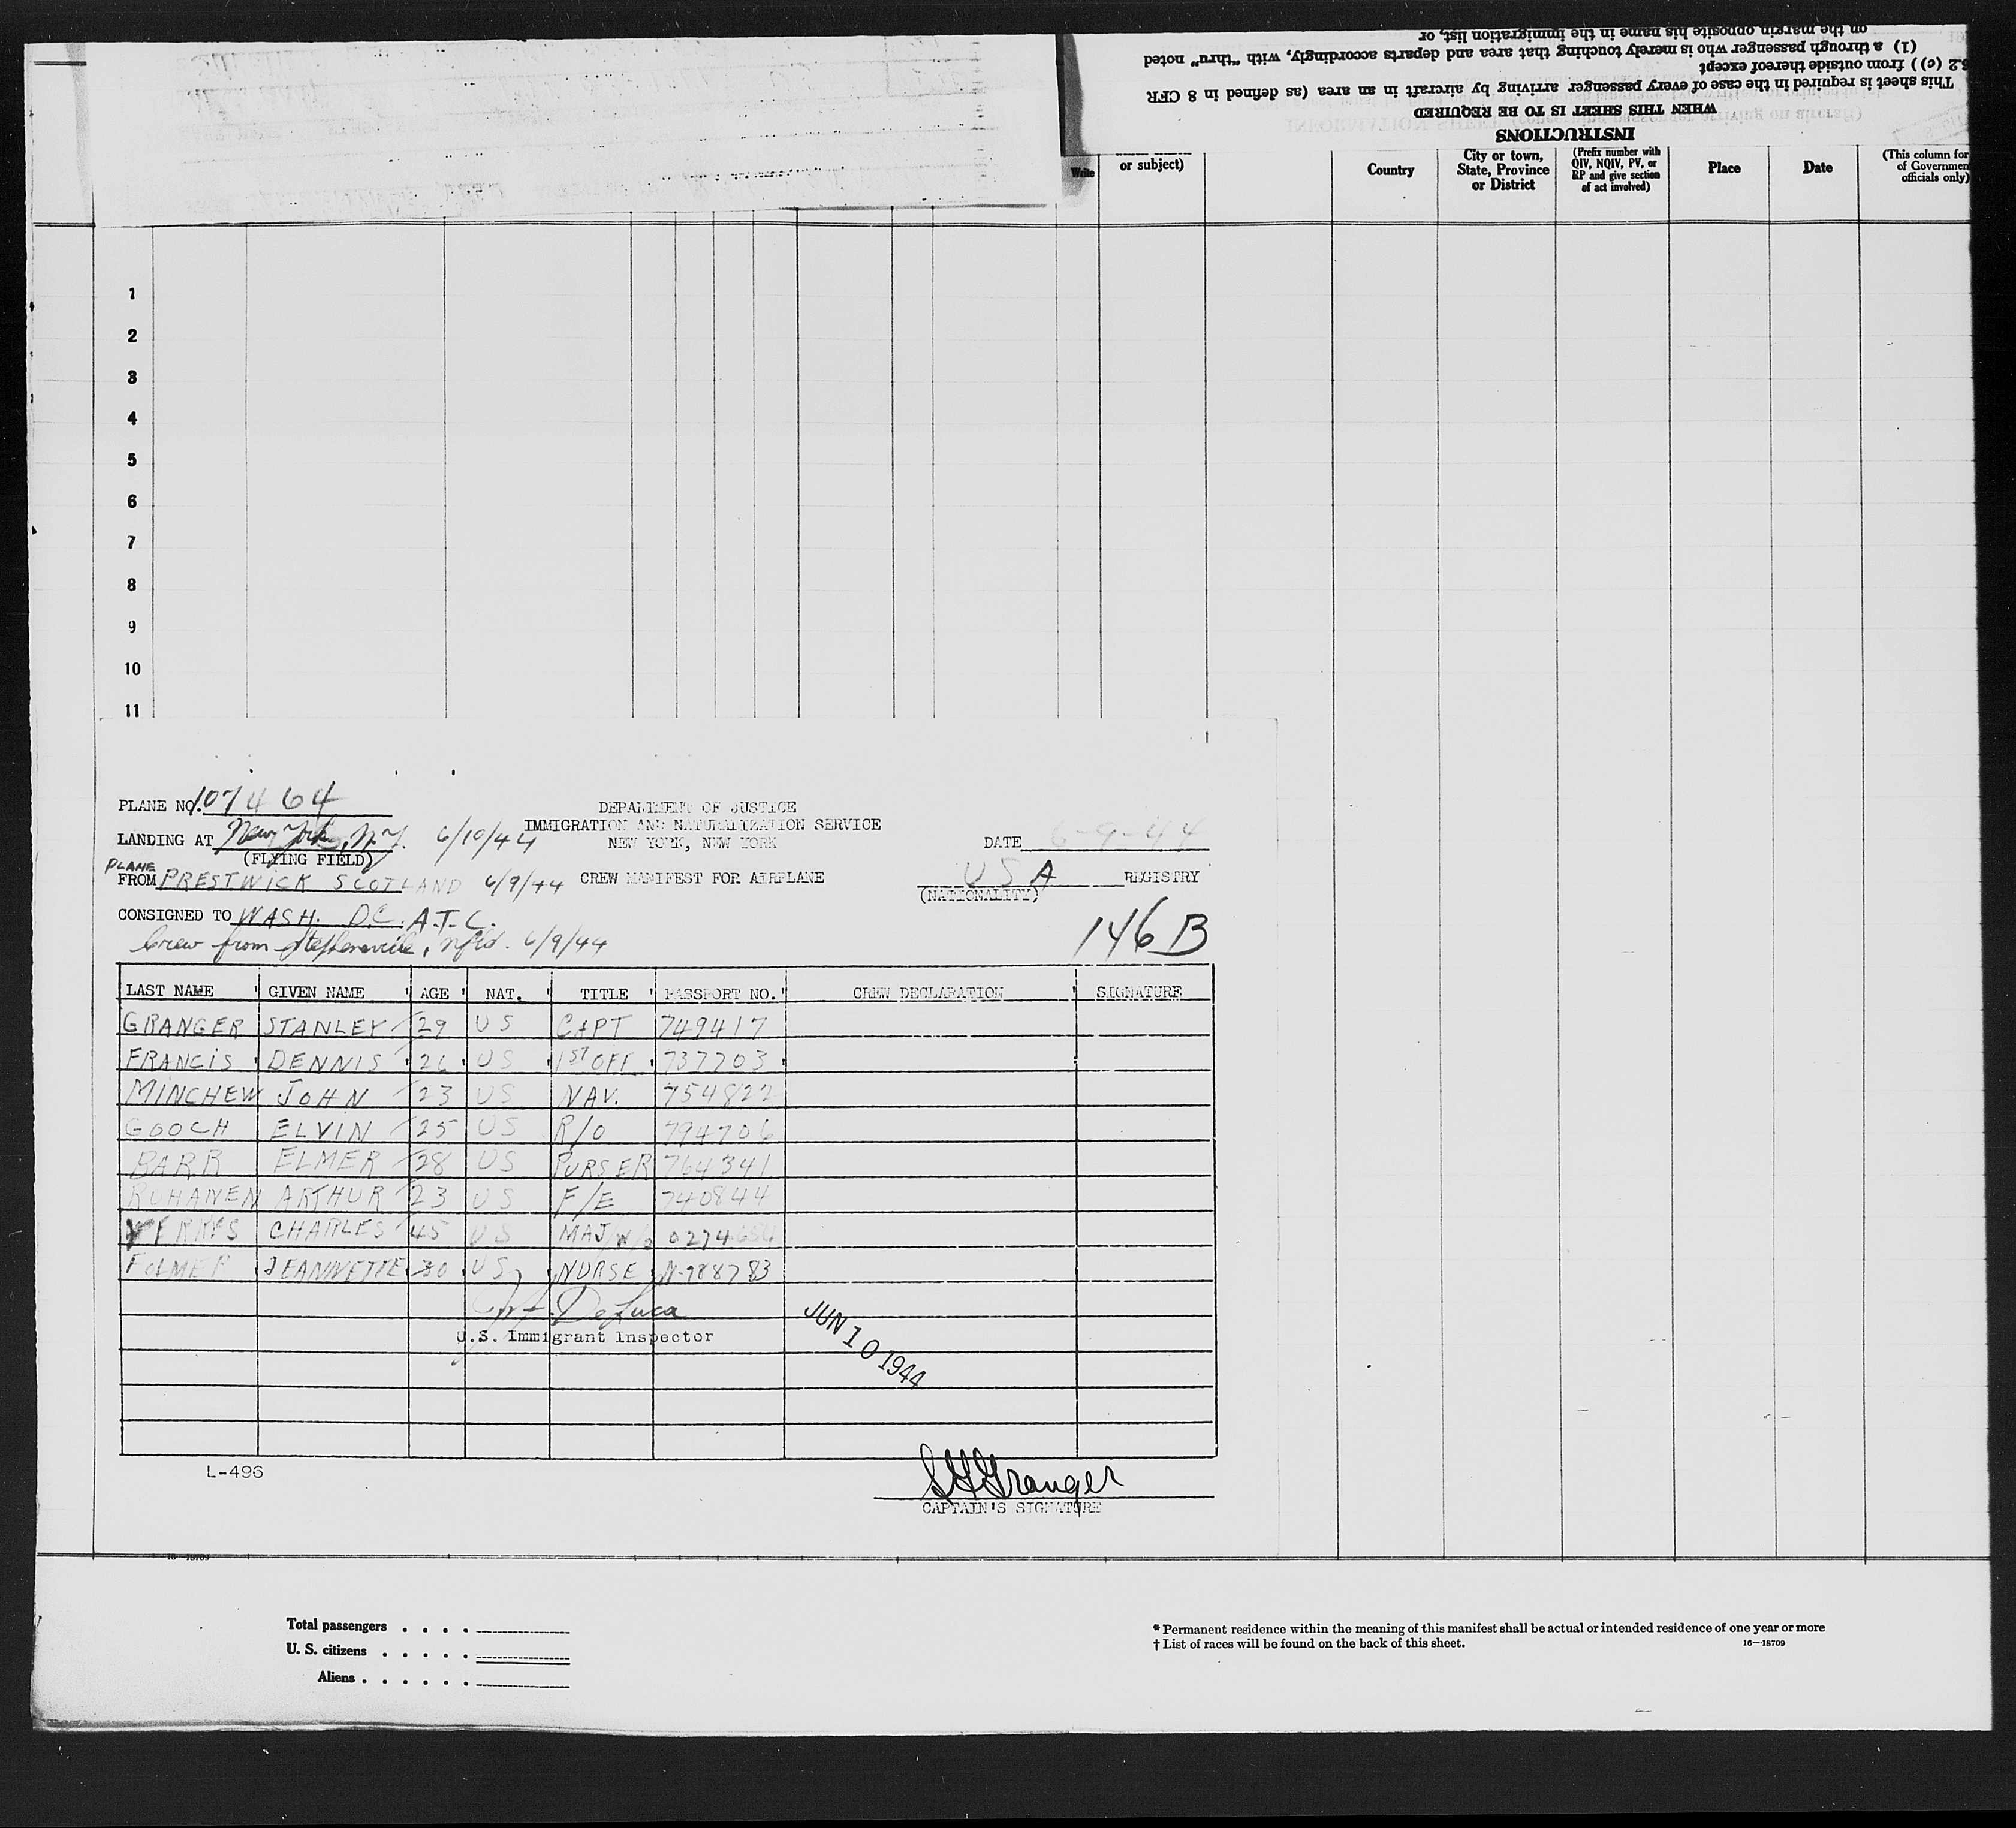 on the margin opposite his name in the immigration list, or
(1) a through passenger who is merely touching that area and departs accordingly, with "thru" noted
6.2 (c)) from outside thereof except
This sheet is required in the case of every passenger arriving by aircraft in an area (as defined in 8 CFR
WHEN THIS SHEET IS TO BE REQUIRED
INSTRUCTIONS
Write
or subject)
Country
City or town, State, Province or District
(Prefix number with QIV, NQIV, PV, or RP and give section of act involved)
Place
Date
(This column for
of Governmen
officials only)
1
2
3
4
5
6
7
8
9
10
11
PLANE NO. 107464
DEPARTMENT OF JUSTICE
LANDING AT New York, N.Y. 6/10/44
IMMIGRATION AND NATURALIZATION SERVICE
(FLYING FIELD)
NEW YORK, NEW YORK
DATE 6-9-44
PLANE
FROM PRESTWICK SCOTLAND 6/9/44
CREW MANIFEST FOR AIRPLANE
USA REGISTRY
(NATIONALITY)
CONSIGNED TO WASH. DC. A.T.C.
Crew from Stephenville, Nfld. 6/9/44
146B
LAST NAME GIVEN NAME AGE NAT. TITLE PASSPORT NO. CREW DECLARATION SIGNATURE
GRANGER STANLEY 29 US CAPT 749417
FRANCIS DENNIS 26 US 1ST OFF 737703
MINCHEW JOHN 23 US NAV. 754822
GOOCH ELVIN 25 US R/O 794706
BARR ELMER 28 US PURSER 764341
RUHANEN ARTHUR 23 US F/E 740844
CHARLES 45 US MAJ
JEANNETTE 30 US NURSE N-788783
De Luca
U.S. Immigrant Inspector
JUN 10 1944
L-496
S H Granger
CAPTAIN'S SIGNATURE
16-18709
Total passengers . . . .
U. S. citizens . . . . .
Aliens . . . . . .
* Permanent residence within the meaning of this manifest shall be actual or intended residence of one year or more
† List of races will be found on the back of this sheet.
16—18709